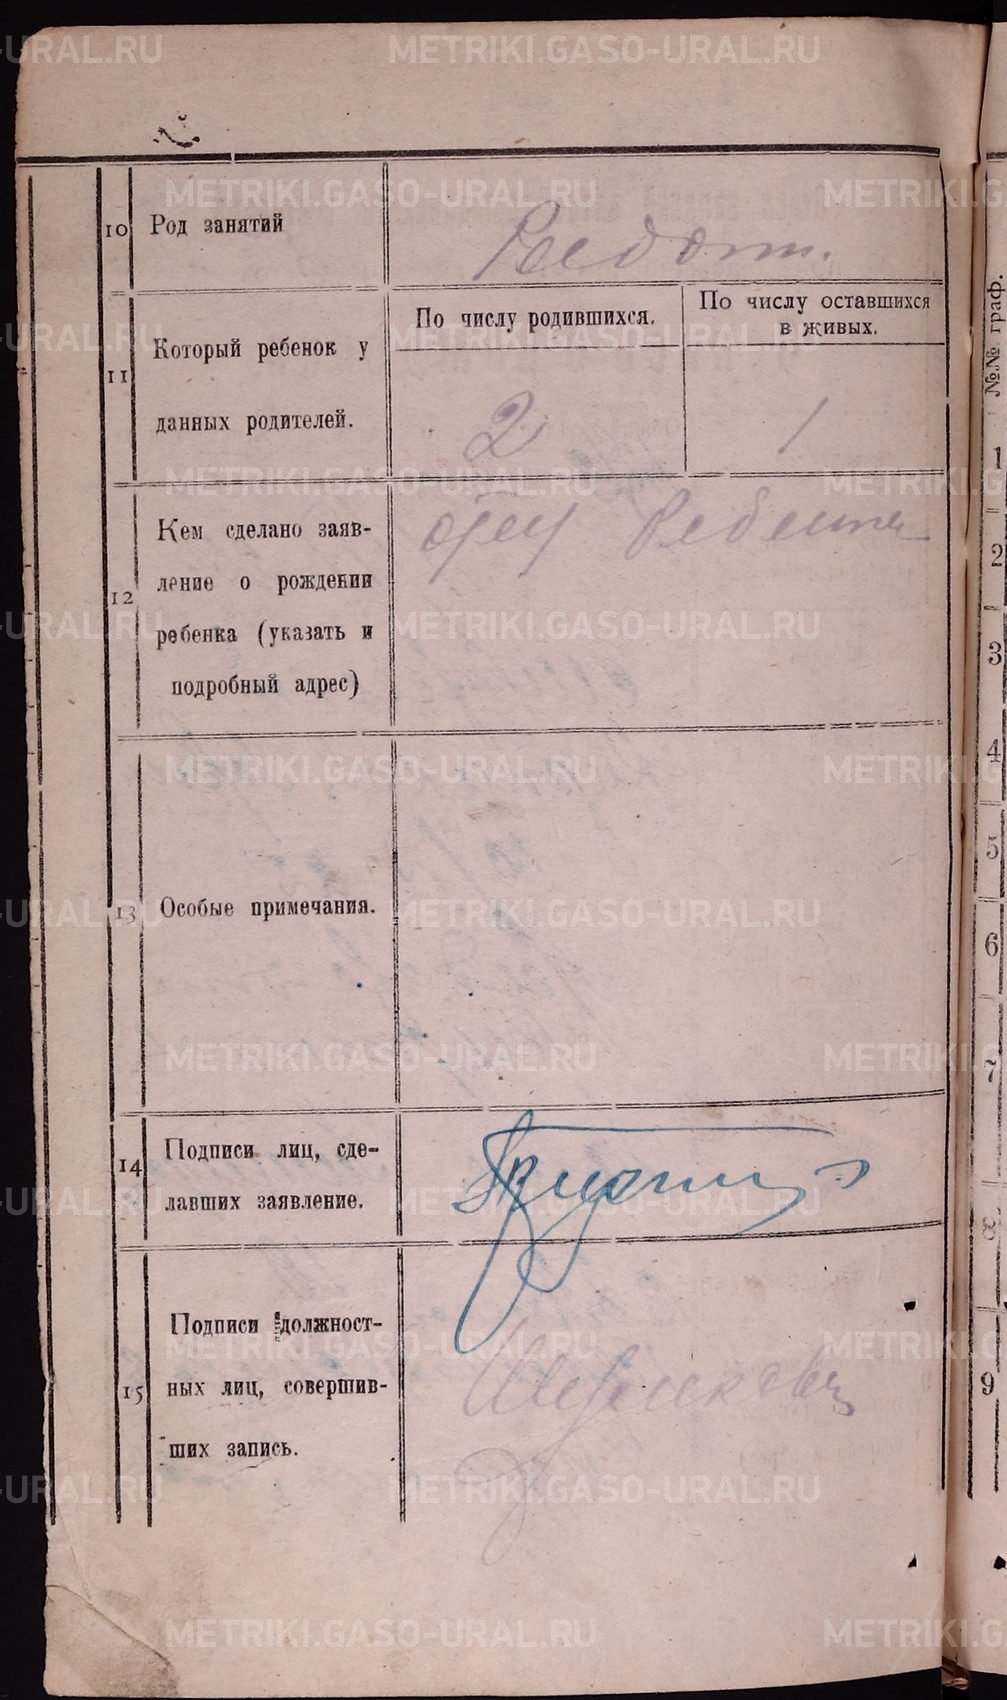 10 Род занятий
По числу родившихся.
По числу оставшихся
в живых.
11 Который ребенок у
данных родителей.
2
1
12 Кем сделано заяв-
ление о рождении
ребенка (указать и
подробный адрес)
отец Ребенка
13 Особые примечания.
14 Подписи лиц, сде-
лавших заявление.
15 Подписи должност-
ных лиц, совершив-
ших запись.
№№ граф.
1
2
3
4
5
6
7
8
9
METRIKI.GASO-URAL.RU